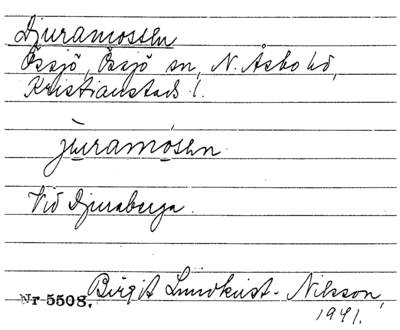 Djuramossen
Össjö, Össjö sn, N. Åsbo hd,
Kristianstads l.
juramosen
Vid Djuraberga.
Nr 5508. Birgit Lundkvist-Nilsson,
1941.